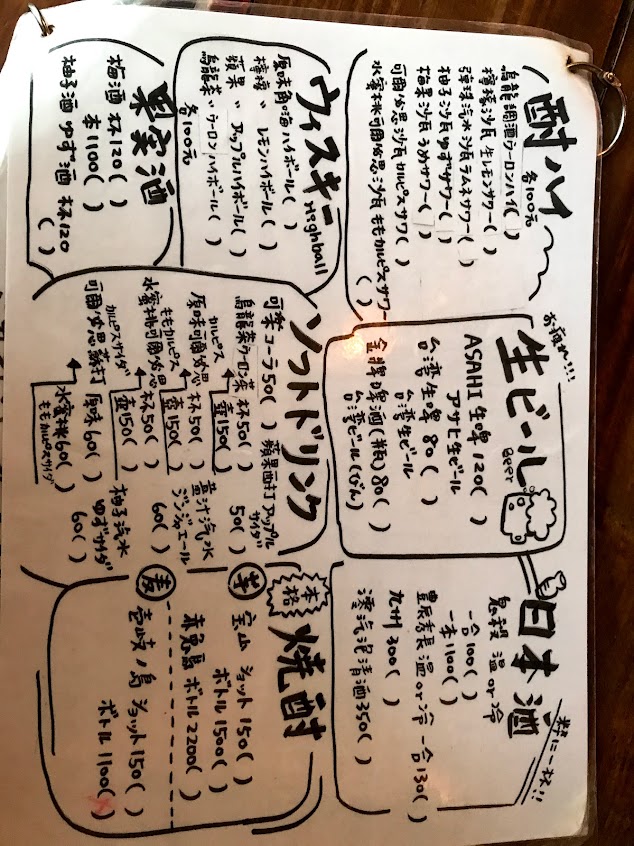 酎ハイ
各100元
烏龍調酒ウーロンハイ( )
檸檬沙瓦生レモンサワー( )
彈珠汽水沙瓦ラムネサワー( )
柚子沙瓦ゆずサワー( )
梅果沙瓦うめサワー( )
可爾必思沙瓦カルピスサワ( )
水蜜桃可爾必思沙瓦ももカルピスサワー( )
お疲れ!!!
生ビール
Beer
ASAHI生啤120( )
アサヒ生ビール
台湾生啤80( )
台湾生ビール
金牌啤酒(瓶)80( )
台湾ビール(びん)
粋に一杯!!
日本酒
温or冷
一合100( )
一本1100( )
温or冷 一合130( )
九州300( )
澪汽泡清酒350( )
ウィスキー
Highball
原味角嗨ハイボール( )
檸檬 〃 レモンハイボール( )
蘋果 〃 アップルハイボール( )
烏龍茶 〃 ウーロンハイボール( )
各100元
ソフトドリンク
可樂コーラ50( )
烏龍茶ウーロン茶 杯50( )
壺150( )
カルピス
原味可爾必思 杯50( )
壺150( )
ももカルピス
水蜜桃可爾必思 杯50( )
壺150( )
カルピスサイダ
可爾必思蘇打 原味60( )
水蜜桃60( )
ももカルピスサイダ
蘋果西打アップルサイダ
50( )
薑汁汽水
ジンジャエール
60( )
柚子汽水
ゆずサイダ
60( )
本格
焼酎
芋
宝山 ショット150( )
ボトル1500( )
赤兎馬 ボトル2200( )
麦
壱岐ノ島 ショット150( )
ボトル1100( )
果実酒
梅酒 杯120( )
本1100( )
柚子酒ゆず酒 杯120
( )